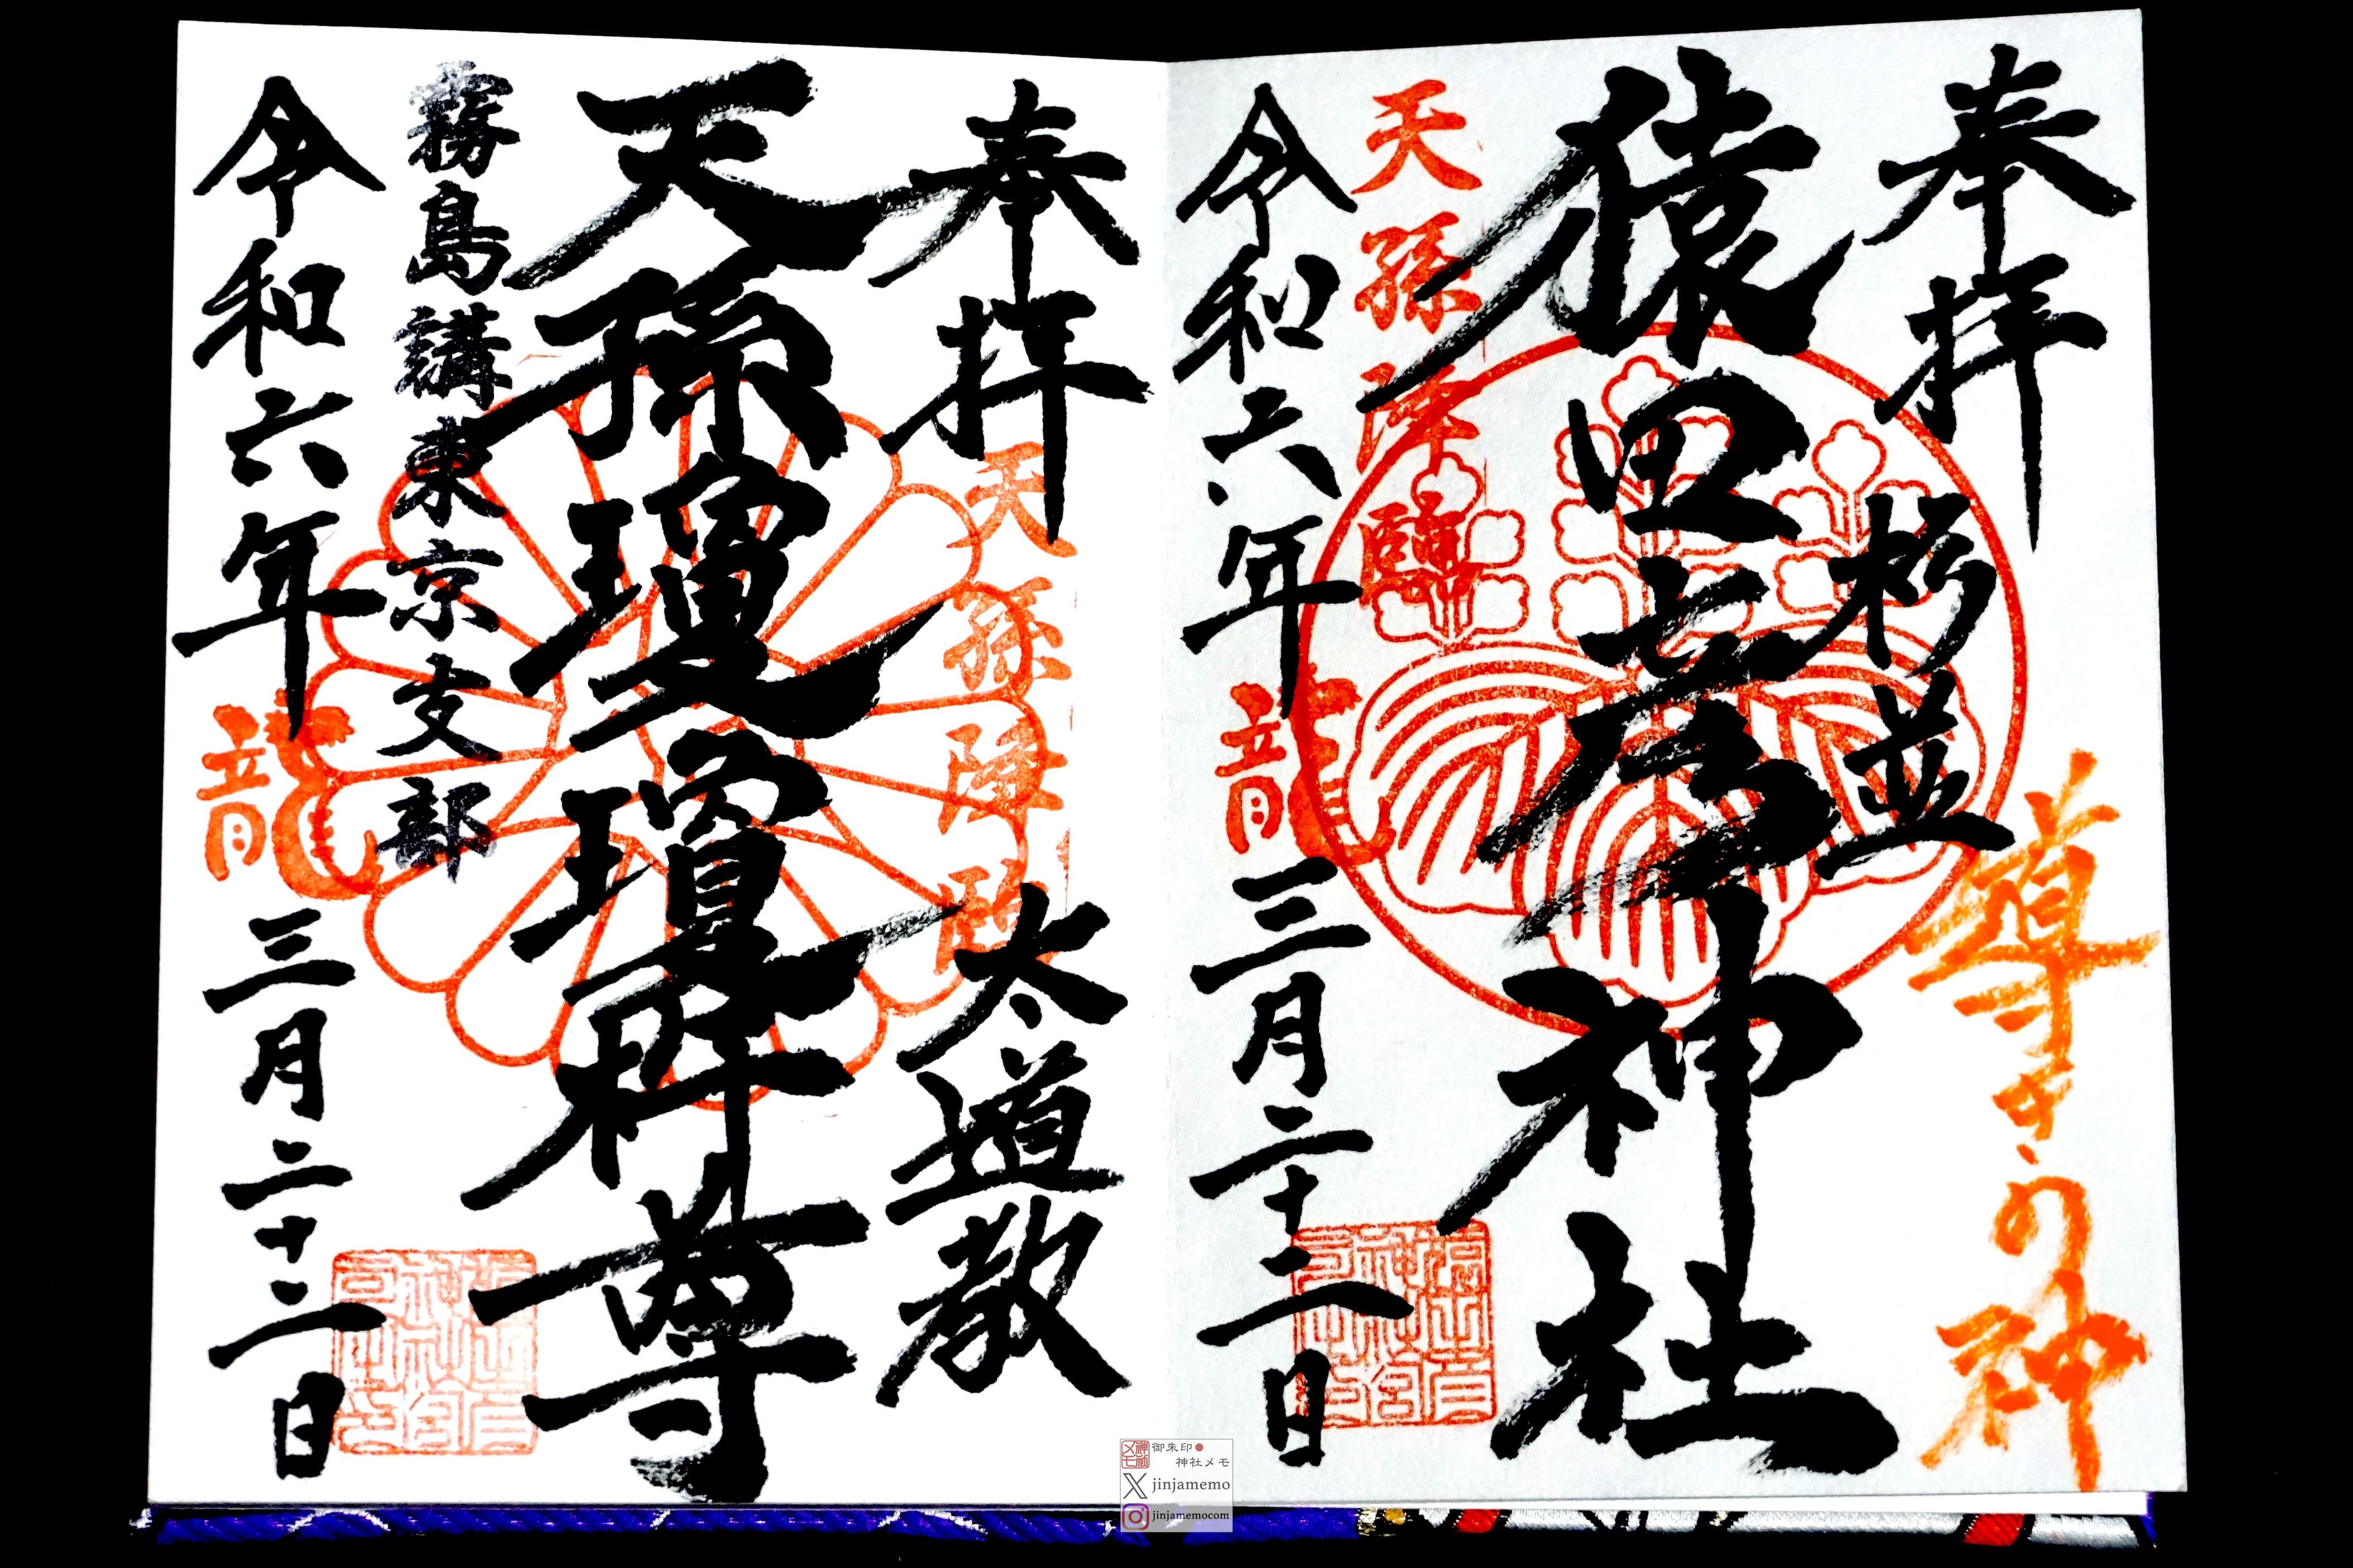 奉拝
杉並
尊き、の神
猿田彦神社
天孫降臨
龍
令和六年 三月二十二日
奉拝
天孫降臨
太道教
天孫瓊瓊杵尊
霧島講東京支部
龍
令和六年 三月二十二日
御朱印
神社メモ
jinjamemo
jinjamemocom